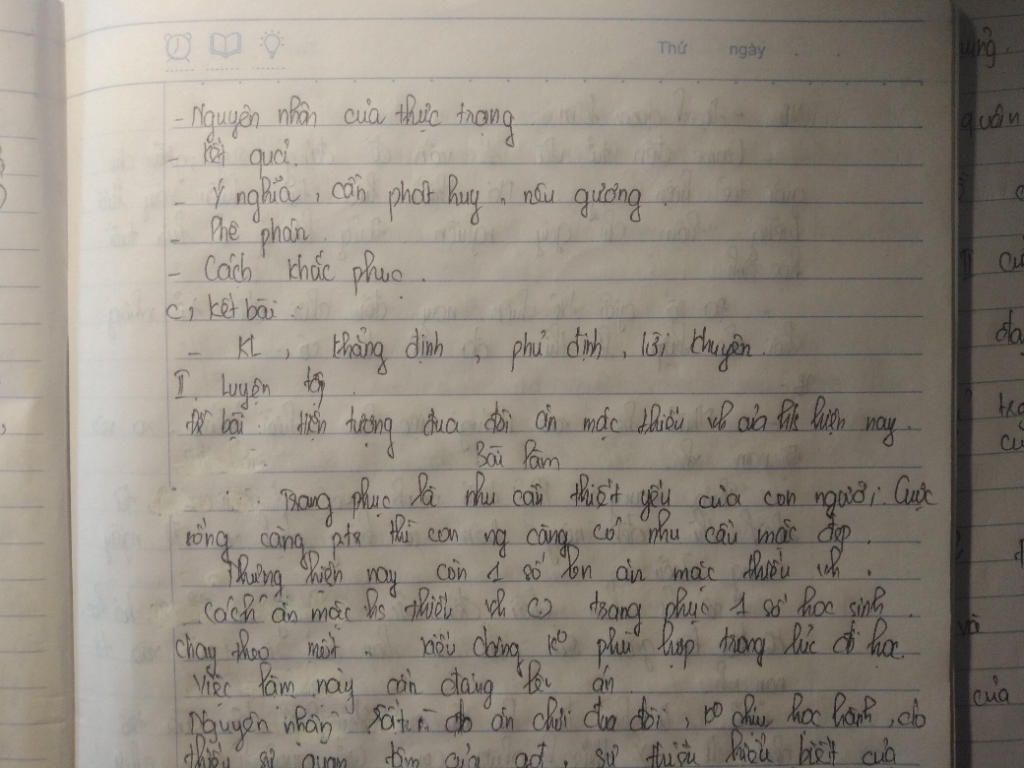 Thứ ngày
- Nguyên nhân của thực trạng
- Kết quả.
- Ý nghĩa, cần phát huy, nêu gương.
- Phê phán.
- Cách khắc phục.
c, Kết bài.
- KL, khẳng định, phủ định, lời khuyên.
II. Luyện tập.
Đề bài: Hiện tượng đua đòi ăn mặc thiếu vh của hiện nay.
Bài làm
Trang phục là nhu cầu thiết yếu của con người. Cuộc
sống càng ptr thì con ng càng có nhu cầu mặc đẹp.
Nhưng hiện nay còn 1 số ăn mặc thiếu vh.
Cách ăn mặc hs thiếu vh trang phục 1 số học sinh
chạy theo mốt kiểu dáng ko phù hợp trong lúc đi học.
Việc làm này cần đáng lên án
Nguyên nhân do ăn chơi đua đòi, ko chịu học hành, do
thiếu sự quan tâm của gđ, sự thiếu hiểu biết của
của